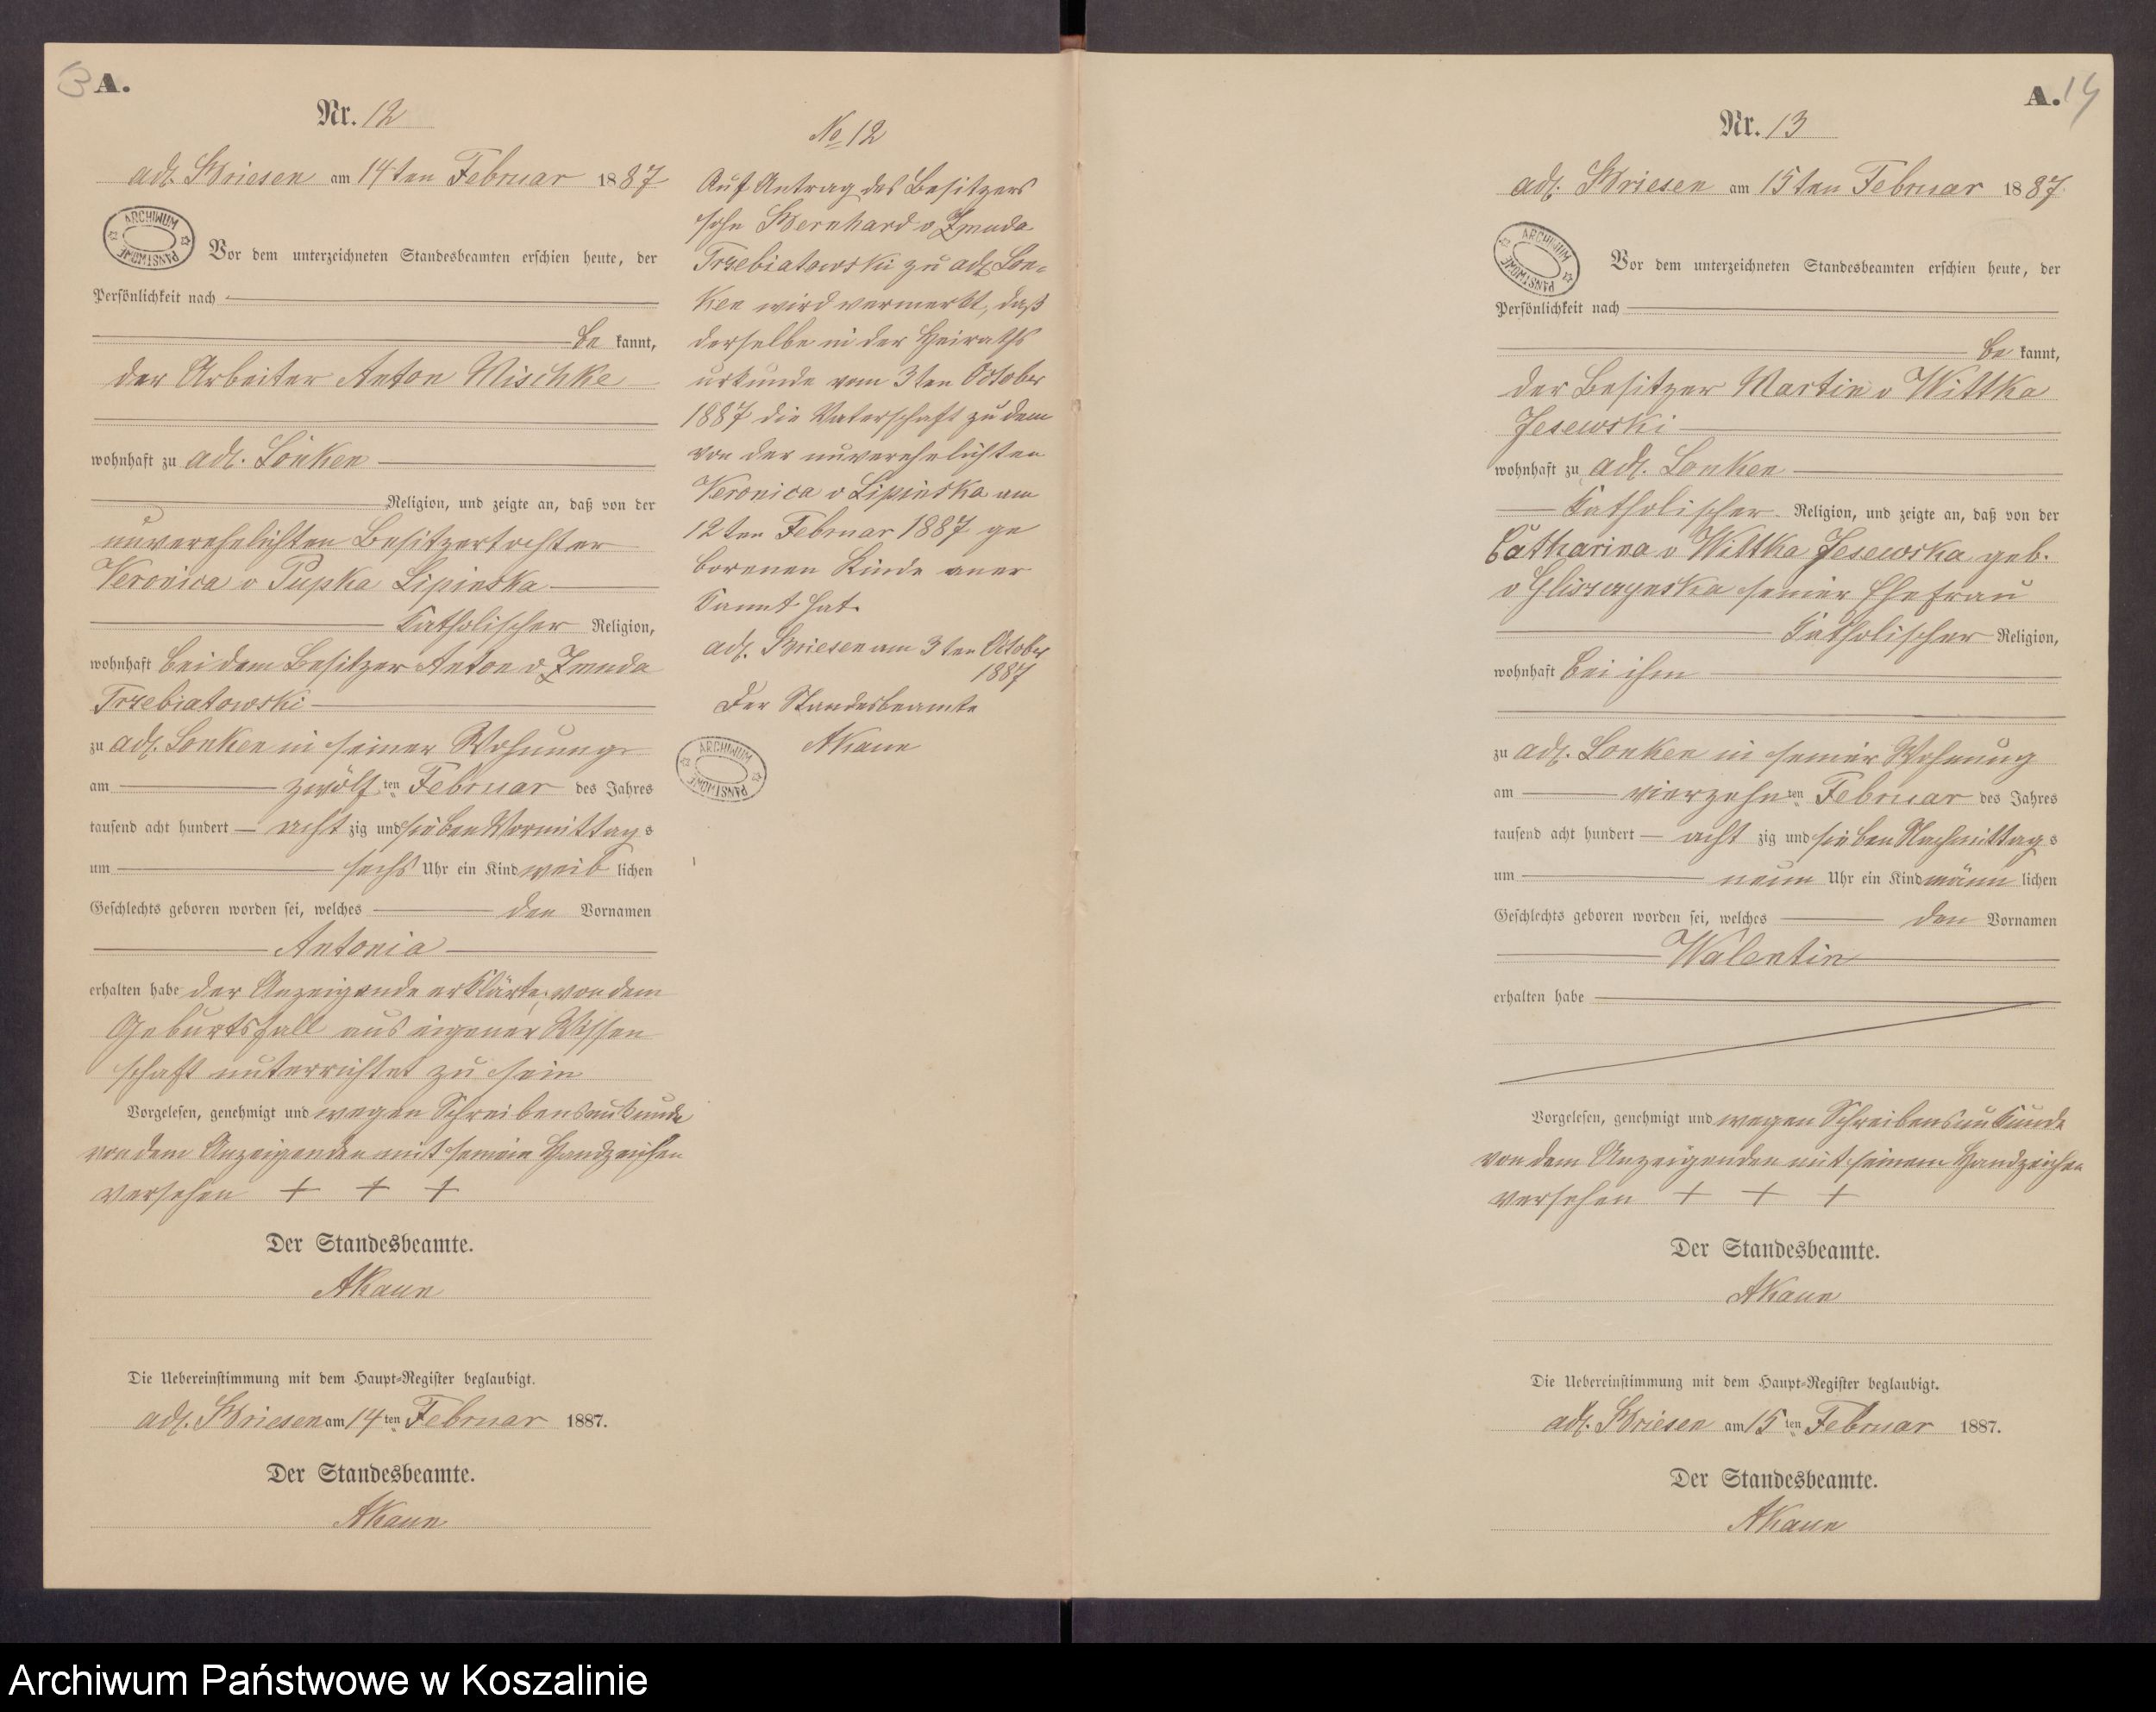 A.
Nr. 12
adl. Briesen am 14ten Februar 1887
ARCHIWUM PAŃSTWOWE
Vor dem unterzeichneten Standesbeamten erschien heute, der
Persönlichkeit nach
be kannt,
der Arbeiter Anton Mischke
wohnhaft zu adl. Lonken
Religion, und zeigte an, daß von der
unverehelichten Besitzertochter
Veronica v Pupka Lipinska
Katholischer Religion,
wohnhaft bei dem Besitzer Anton v Zmuda
Trzebiatowski
zu adl. Lonken in seiner Wohnung
am zwölf ten Februar des Jahres
tausend acht hundert acht zig und sieben Vormittag s
um sechs Uhr ein Kind weib lichen
Geschlechts geboren worden sei, welches den Vornamen
Antonia
erhalten habe der Anzeigende erklärte, von dem
Geburtsfall aus eigener Wissen
schaft unterrichtet zu sein
Vorgelesen, genehmigt und wegen Schreibensunkunde
von dem Anzeigenden mit seinem Handzeichen
versehen + + +
Der Standesbeamte.
AKaun
Die Uebereinstimmung mit dem Haupt-Register beglaubigt.
adl. Briesen am 14 ten Februar 1887.
Der Standesbeamte.
AKaun
No 12
Auf Antrag des Besitzers
sohn Bernhard v Zmuda
Trzebiatowski zu adl. Lon-
ken wird vermerkt, daß
derselbe in der Heiraths
urkunde vom 3ten October
1887 die Vaterschaft zu dem
von der unverehelichten
Veronica v Lipinska am
12ten Februar 1887 ge
borenen Kinde aner
kannt hat.
adl. Briesen am 3ten October
1887
Der Standesbeamte
AKaun
ARCHIWUM PAŃSTWOWE
A. 14
Nr. 13
adl. Briesen am 15ten Februar 1887.
ARCHIWUM PAŃSTWOWE
Vor dem unterzeichneten Standesbeamten erschien heute, der
Persönlichkeit nach
be kannt,
der Besitzer Martin v Wittka
Jesewski
wohnhaft zu adl. Lonken
Katholischer Religion, und zeigte an, daß von der
Catharina v Wittka Jesewska geb.
v seiner Ehefrau
Katholischer Religion,
wohnhaft bei ihm
zu adl. Lonken in seiner Wohnung
am vierzehn ten Februar des Jahres
tausend acht hundert acht zig und sieben Nachmittag s
um neun Uhr ein Kind männ lichen
Geschlechts geboren worden sei, welches den Vornamen
Walentin
erhalten habe
Vorgelesen, genehmigt und wegen Schreibensunkunde
von dem Anzeigenden mit seinem Handzeichen
versehen + + +
Der Standesbeamte.
AKaun
Die Uebereinstimmung mit dem Haupt-Register beglaubigt.
adl. Briesen am 15 ten Februar 1887.
Der Standesbeamte.
AKaun
Archiwum Państwowe w Koszalinie